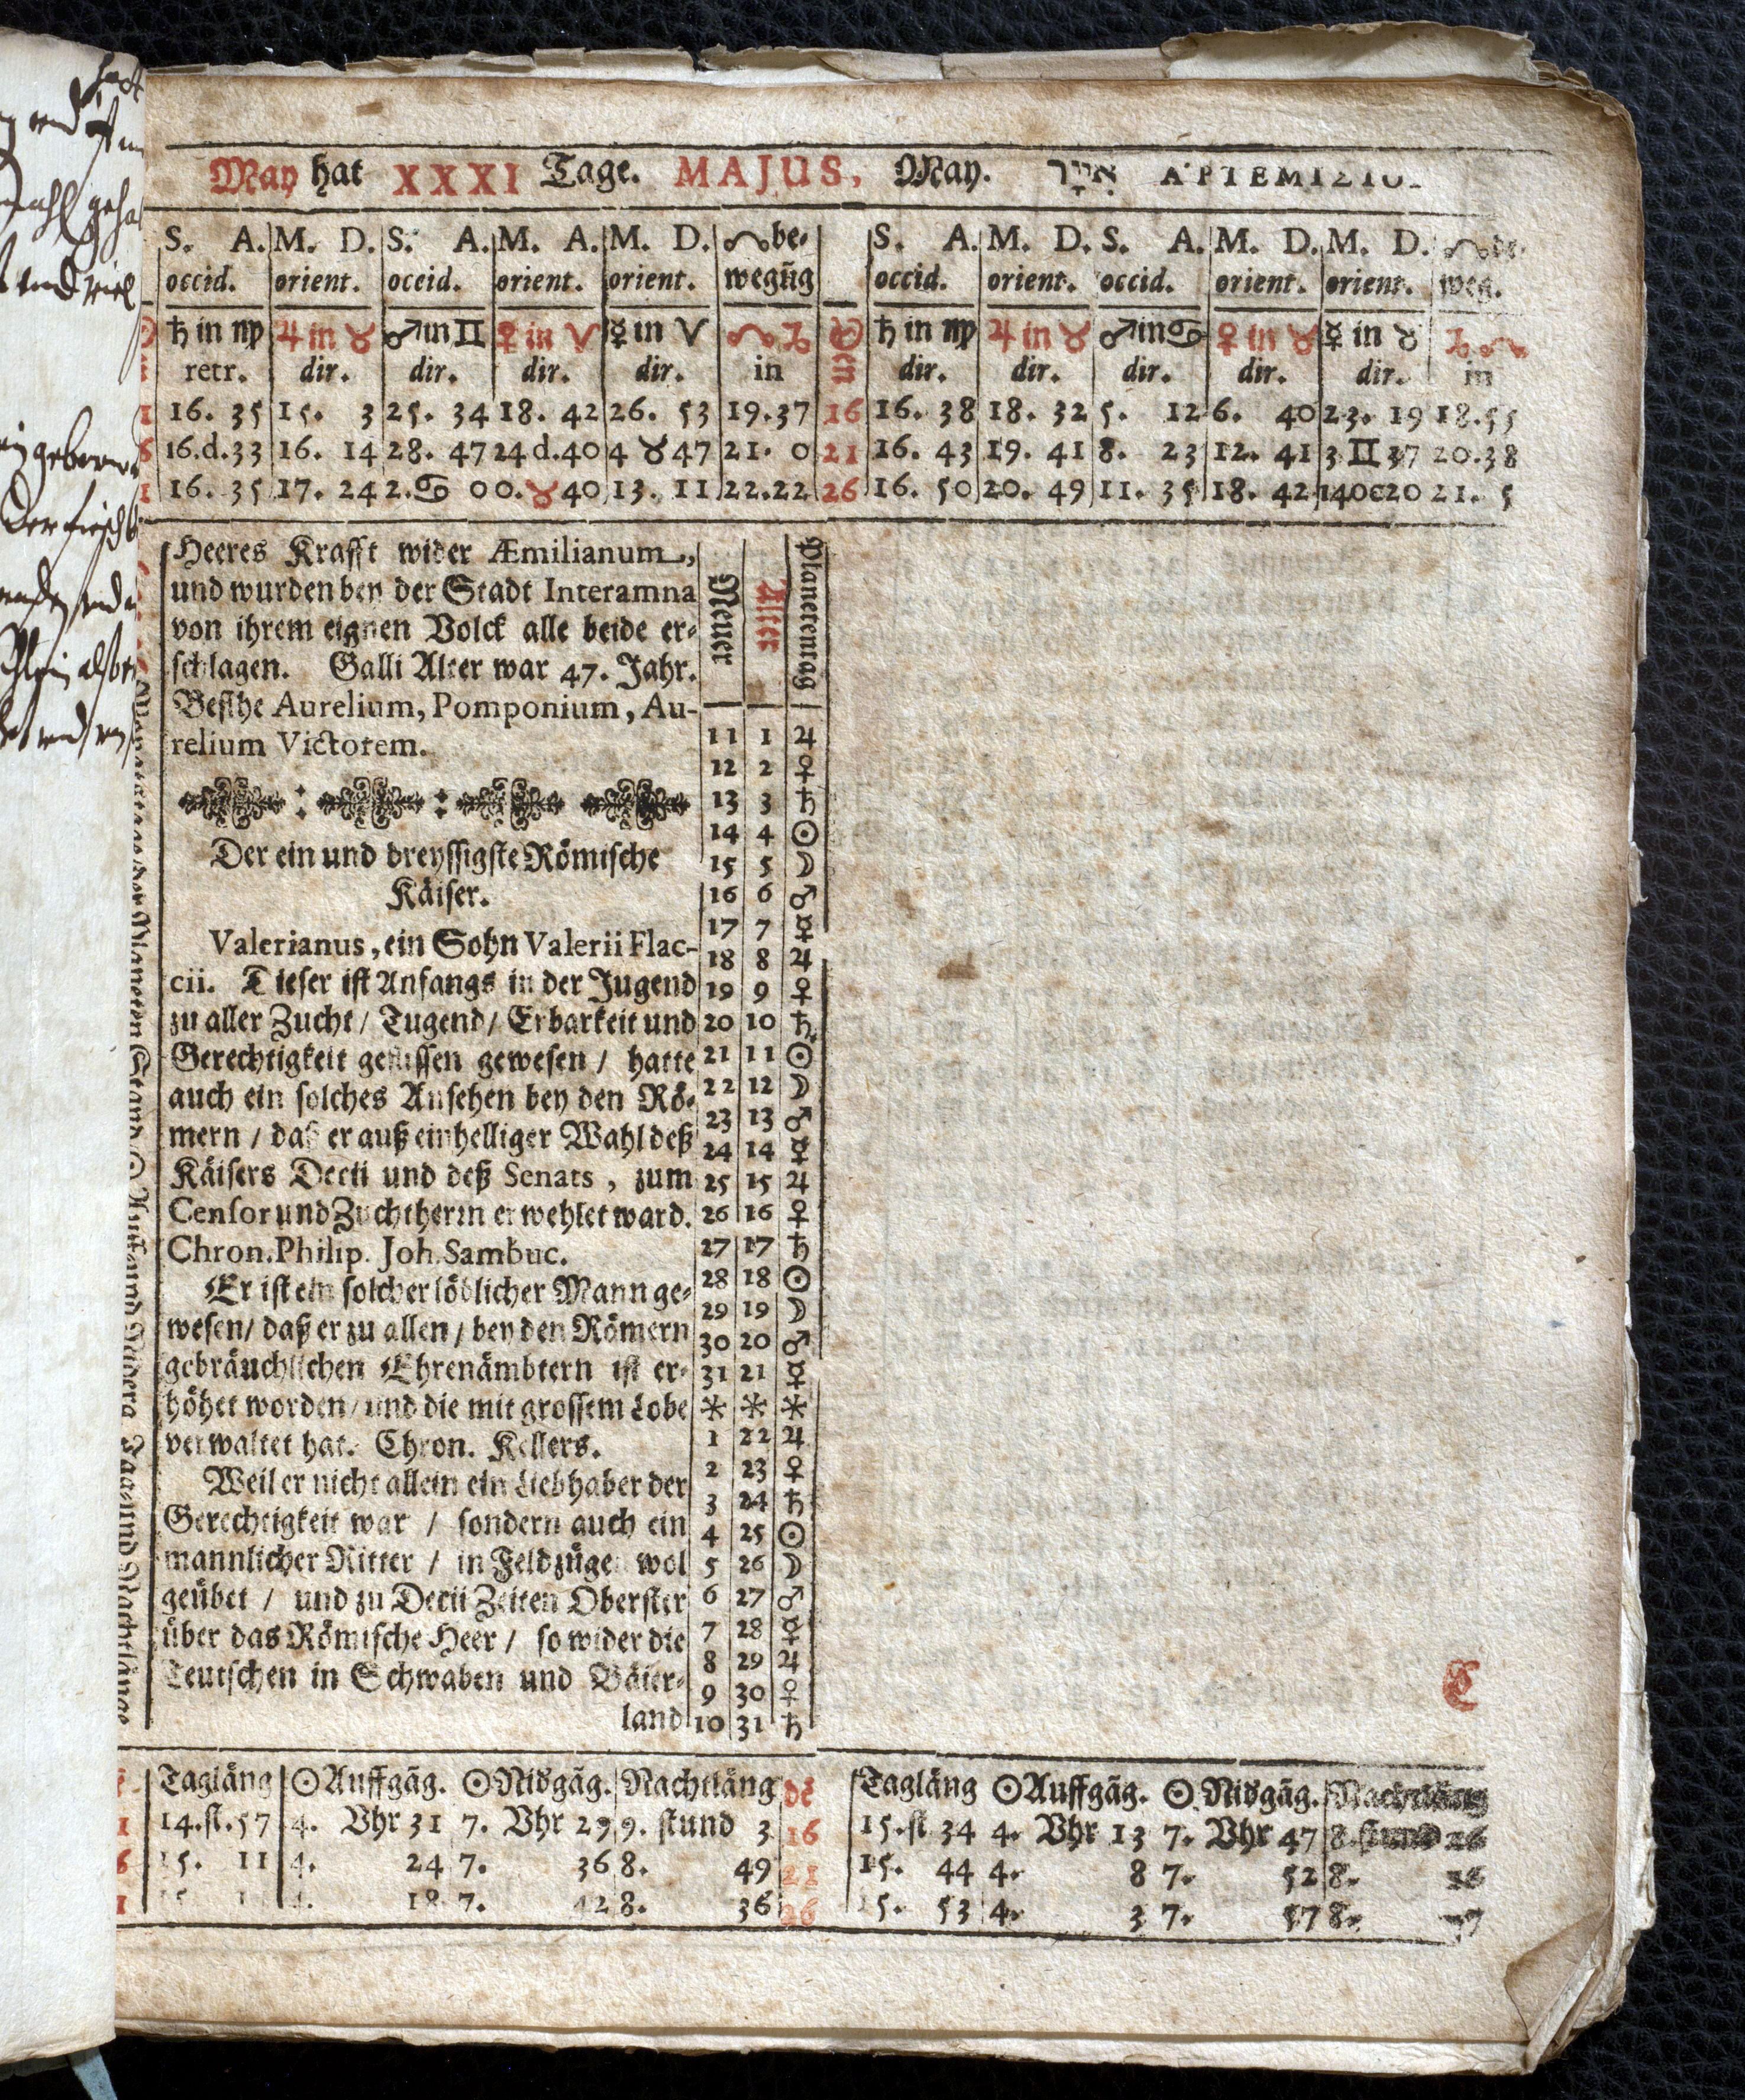 May hat XXXI Tage. MAJUS, May. אייר ΑΡΤΕΜΙΣΙΟ
S. A. M. D. S. A. M. A. M. D. ☊be- S. A. M. D. S. A. M. D. M. D.
occid. orient. occid. orient. orient. wegūg occid. orient. occid. orient. orient. weg.
♄ in ♍ ♃ in ♉ ♂ in ♊ ♀ in ♈ ☿ in ♈ ☊ ♑ ♄ in ♍ ♃ in ♉ ♂ in ♋ ♀ in ♉ ☿ in ♉ ♑ ☊
retr. dir. dir. dir. dir. in dir. dir. dir. dir. dir. in
1 16. 35 15. 3 25. 34 18. 42 26. 53 19.37 16 16. 38 18. 32 5. 12 6. 40 23. 19 18.55
6 16.d.33 16. 14 28. 47 24 d.40 4 ♉ 47 21. 0 21 16. 43 19. 41 8. 23 12. 41 3 ♊ 37 20.38
1 16. 35 17. 24 2.♋ 0 0.♉ 40 13. 11 22.22 26 16. 50 20. 49 11. 35 18. 42 20 21. 5
Heeres Krafft wider Æmilianum,
und wurden bey der Stadt Interamna
von ihrem eignen Volck alle beide er-
schlagen. Galli Alter war 47. Jahr.
Besihe Aurelium, Pomponium, Au-
relium Victorem.
Der ein und dreyssigste Römische
Käiser.
Valerianus, ein Sohn Valerii Flac-
cii. Dieser ist Anfangs in der Jugend
zu aller Zucht / Tugend / Erbarkeit und
Gerechtigkeit geflissen gewesen / hatte
auch ein solches Ansehen bey den Rö-
mern / daß er auß einhelliger Wahl deß
Käisers Decii und deß Senats, zum
Censor und Zuchtherrn erwehlet ward.
Chron. Philip. Joh. Sambuc.
Er ist ein solcher löblicher Mann ge-
wesen / daß er zu allen / bey den Römern
gebräuchlichen Ehrenämbtern ist er-
höhet worden / und die mit grossem Lobe
verwaltet hat. Chron. Kellers.
Weil er nicht allein ein Liebhaber der
Gerechtigkeit war / sondern auch ein
mannlicher Ritter / in Feldzügen wol
geübet / und zu Decii Zeiten Oberster
über das Römische Heer / so wider die
Teutschen in Schwaben und Bäier-
land
Neuer Alter Planetentag
11 1 ♃
12 2 ♀
13 3 ♄
14 4 ☉
15 5 ☽
16 6 ♂
17 7 ☿
18 8 ♃
19 9 ♀
20 10 ♄
21 11 ☉
22 12 ☽
23 13 ♂
24 14 ☿
25 15 ♃
26 16 ♀
27 17 ♄
28 18 ☉
29 19 ☽
30 20 ♂
31 21 ☿
* * *
1 22 ♃
2 23 ♀
3 24 ♄
4 25 ☉
5 26 ☽
6 27 ♂
7 28 ☿
8 29 ♃
9 30 ♀
10 31 ♄
C
Tagläng ☉Auffgāg. ☉Nidgāg. Nachtläng dē Tagläng ☉Auffgāg. ☉Nidgāg. Nachtläng
1 14.st.57 4. Vhr 31 7. Vhr 29 9. stund 3 16 15.st 34 4. Vhr 13 7. Vhr 47 8. stund 26
6 15. 11 4. 24 7. 36 8. 49 21 15. 44 4. 8 7. 52 8.
1 4. 18 7. 42 8. 36 26 15. 53 4. 3 7. 57 8.